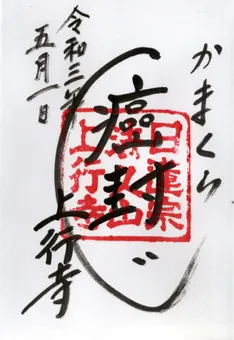 かまくら
癌封じ
日蓮宗
上行寺
上行寺
令和三年
五月一日